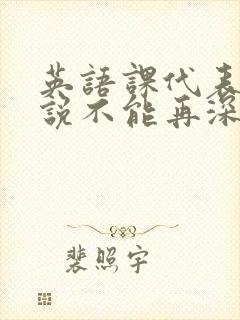 英語課代表
說不能再深
裴照宇